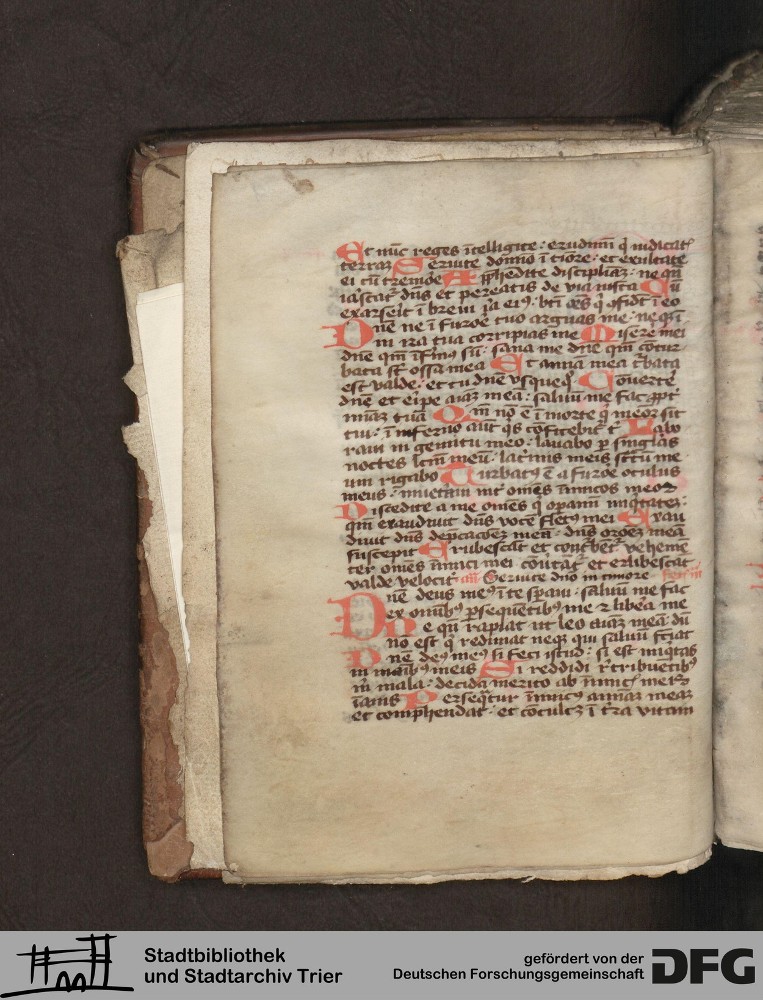 Et nūc reges ītelligite: erudim̄ q̄ iudicat
terraz Seruite domīo ī tiore: et exultate
ei cū tremōe Apphēdite discipliāz: ne qn̄
irascat̄ dn̄s et pereatis de via iusta Cū
exarserit ī breui ira eiꝰ: bt̄i oēs q̄ ɔfidt̄ ī eo
Dn̄e ne ī furoē tuo arguas me: neqꝫ ī
in ira tua corripias me Miserē mei
dn̄e qm̄ īfirmꝰ sū: sana me dn̄e qm̄ ɔtur
bata st̄ ossa mea Et anīa mea t̄bata
est valde: et tu dn̄e vsquequo Conuerte
dn̄e et eripe aīaz meā: saluū me fac ꝓpt̄
mīaz tuā Qm̄ nō ē ī morte q̄ meor̄ sit
tui: ī inferno aūt q̄s cōfitebit̄ t̄ Labo
raui in gemitu meo: lauabo p̄ singlas
noctes lc̄m meū: lacrimis meis st̄tū me
um rigabo Turbatꝰ ē a furoē oculus
meus: inuet̄aui int̄ om̄es inīcos meoꝝ
Discedite a me om̄es q̄ opam̄ iniqtatez:
qm̄ exaudiuit dn̄s vocē fletꝰ mei Exau
diuit dn̄s dep̄cacōez meā: dn̄s oroēz meā
suscepit Erubescāt et cont̄bet̄ vehemē
ter om̄es inīci mei cōutāt̄ et erubescāt
valde velocit̄ an̄ Seruite dn̄o in timore
Dn̄e deus meꝰ ī te sp̄aui: saluū me fac
ex om̄ibꝰ ꝑsequētibꝰ me ⁊ libera me
Ne qn̄ rapiat ut leo aīaz meā: dū
nō est q̄ redimat neqꝫ qui saluū faciat
Dn̄e deꝰ meꝰ si feci istud: si est iniqtas
in manibꝰ meis Si reddidi r̄tribuētibꝰ
m̄ mala: decidā merito ab inīcis meis
īanis Persequatur inīcus aīmaz meaz
et comp̄hendat: et cōculcet ī t̄ra vitam
Stadtbibliothek
und Stadtarchiv Trier
gefördert von der
Deutschen Forschungsgemeinschaft
DFG